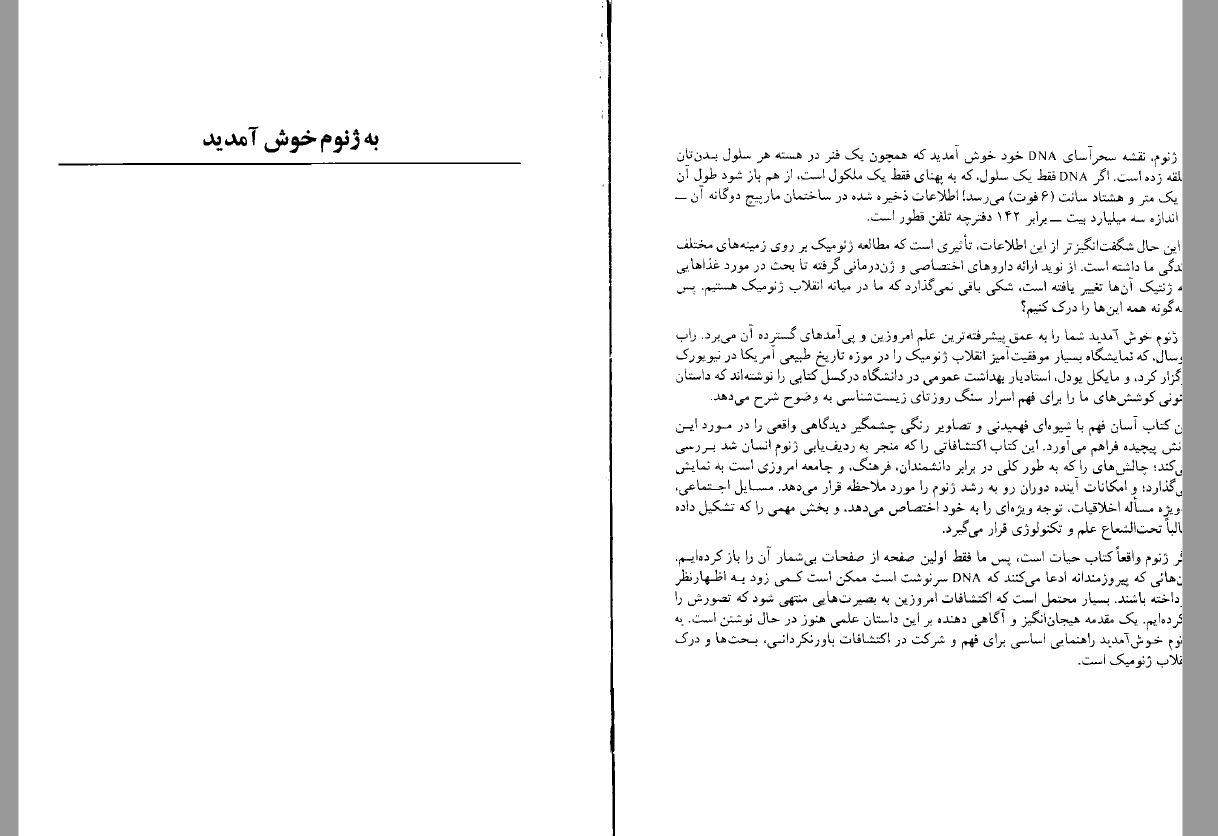 ژنوم، نقشه سحرآسای DNA خود خوش آمدید که همچون یک فنر در هسته هر سلول بدن‌تان
لقه زده است. اگر DNA فقط یک سلول، که به پهنای فقط یک ملکول است، از هم باز شود طول آن
یک متر و هشتاد سانت (۶ فوت) می‌رسد! اطلاعات ذخیره شده در ساختمان مارپیچ دوگانه آن ــ
اندازه سه میلیارد بیت ــ برابر ۱۴۲ دفترچه تلفن قطور است.
این حال شگفت‌انگیزتر از این اطلاعات، تأثیری است که مطالعه ژنومیک بر روی زمینه‌های مختلف
ندگی ما داشته است. از نوید ارائه داروهای اختصاصی و ژن‌درمانی گرفته تا بحث در مورد غذاهایی
ه ژنتیک آن‌ها تغییر یافته است، شکی باقی نمی‌گذارد که ما در میانه انقلاب ژنومیک هستیم. پس
به‌گونه همه این‌ها را درک کنیم؟
ژنوم خوش آمدید شما را به عمق پیشرفته‌ترین علم امروزین و پی‌آمدهای گسترده آن می‌برد. راب
وسال، که نمایشگاه بسیار موفقیت‌آمیز انقلاب ژنومیک را در موزه تاریخ طبیعی آمریکا در نیویورک
گزار کرد، و مایکل یودل، استادیار بهداشت عمومی در دانشگاه درکسل کتابی را نوشته‌اند که داستان
نونی کوشش‌های ما را برای فهم اسرار سنگ روزتای زیست‌شناسی به وضوح شرح می‌دهد.
ن کتاب آسان فهم با شیوه‌ای فهمیدنی و تصاویر رنگی چشمگیر دیدگاهی واقعی را در مورد این
نش پیچیده فراهم می‌آورد. این کتاب اکتشافاتی را که منجر به ردیف‌یابی ژنوم انسان شد بررسی
ی‌کند؛ چالش‌های را که به طور کلی در برابر دانشمندان، فرهنگ، و جامعه امروزی است به نمایش
ی‌گذارد؛ و امکانات آینده دوران رو به رشد ژنوم را مورد ملاحظه قرار می‌دهد. مسایل اجتماعی،
ویژه مسأله اخلاقیات، توجه ویژه‌ای را به خود اختصاص می‌دهد، و بخش مهمی را که تشکیل داده
الباً تحت‌الشعاع علم و تکنولوژی قرار می‌گیرد.
گر ژنوم واقعاً کتاب حیات است، پس ما فقط اولین صفحه از صفحات بی‌شمار آن را باز کرده‌ایم.
ن‌هائی که پیروزمندانه ادعا می‌کنند که DNA سرنوشت است ممکن است کمی زود به اظهارنظر
رداخته باشند. بسیار محتمل است که اکتشافات امروزین به بصیرت‌هایی منتهی شود که تصورش را
کرده‌ایم. یک مقدمه هیجان‌انگیز و آگاهی دهنده بر این داستان علمی هنوز در حال نوشتن است. به
نوم خوش‌آمدید راهنمایی اساسی برای فهم و شرکت در اکتشافات باورنکردانی، بحث‌ها و درک
نقلاب ژنومیک است.
به ژنوم خوش آمدید